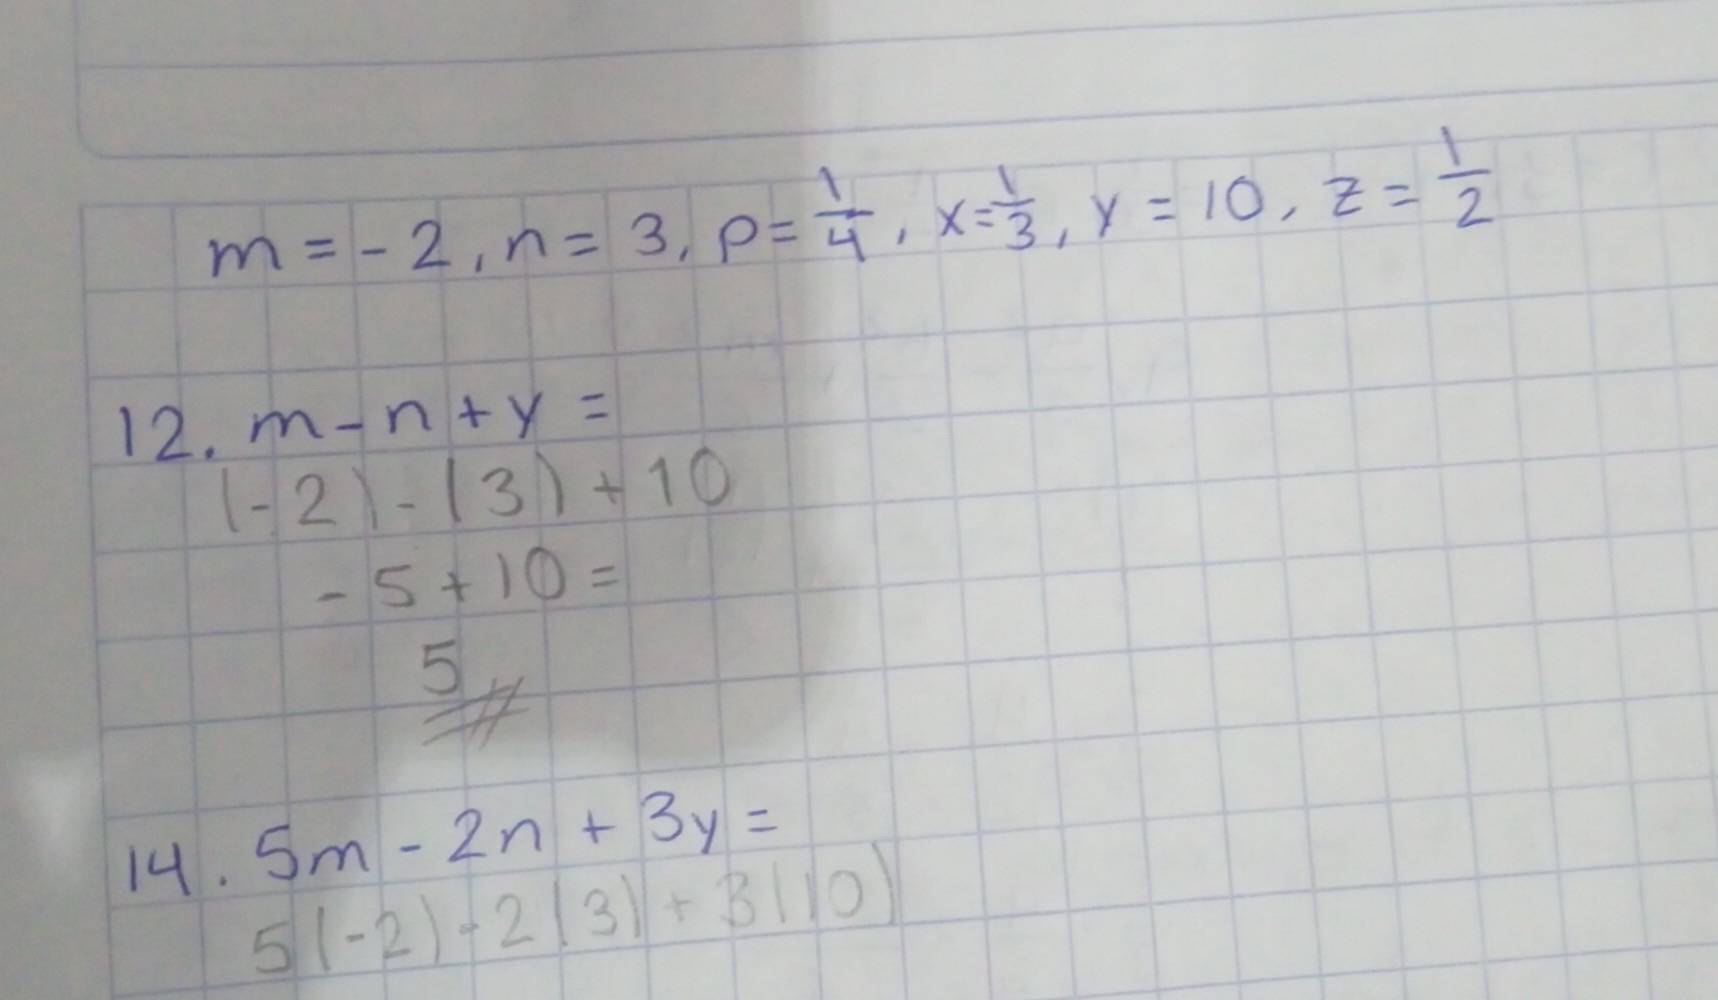 m = -2, n = 3, p = 1/4, x = 1/3, y = 10, z = 1/2
12. m - n + y =
(-2) - (3) + 10
- 5 + 10 =
5
14. 5m - 2n + 3y =
5(-2) - 2(3) + 3(10)